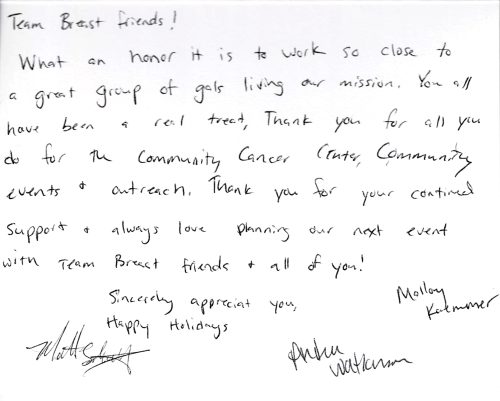 Team Breast friends!
What an honor it is to work so close to
a great group of gals living our mission. You all
have been a real treat, Thank you for all you
do for the Community Cancer Center, Community
events & outreach. Thank you for your continued
support & always love planning our next event
with Team Breast friends & all of you!
Sincerely appreciat you,
Happy Holidays
Molloy
Matt
Andrea
Watkinson